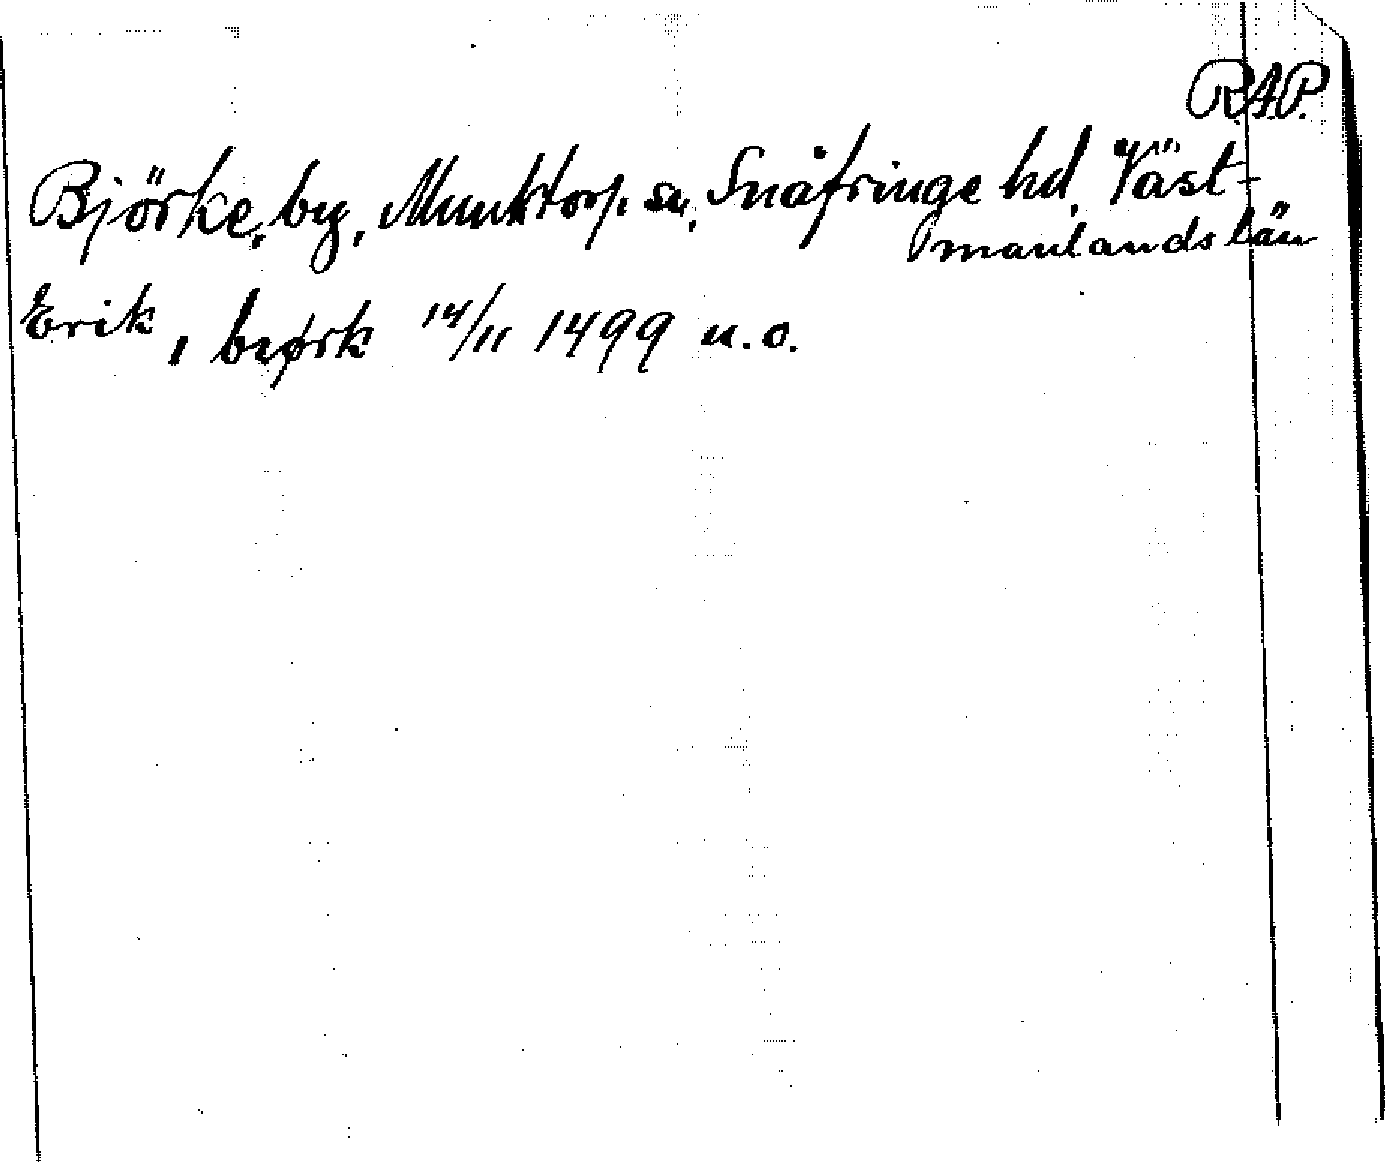 RAP.
Björke, by, Munktorp sn, Snåfringe hd, Väst-
manlands län
Erik, i beørk 14/11 1499 u.o.